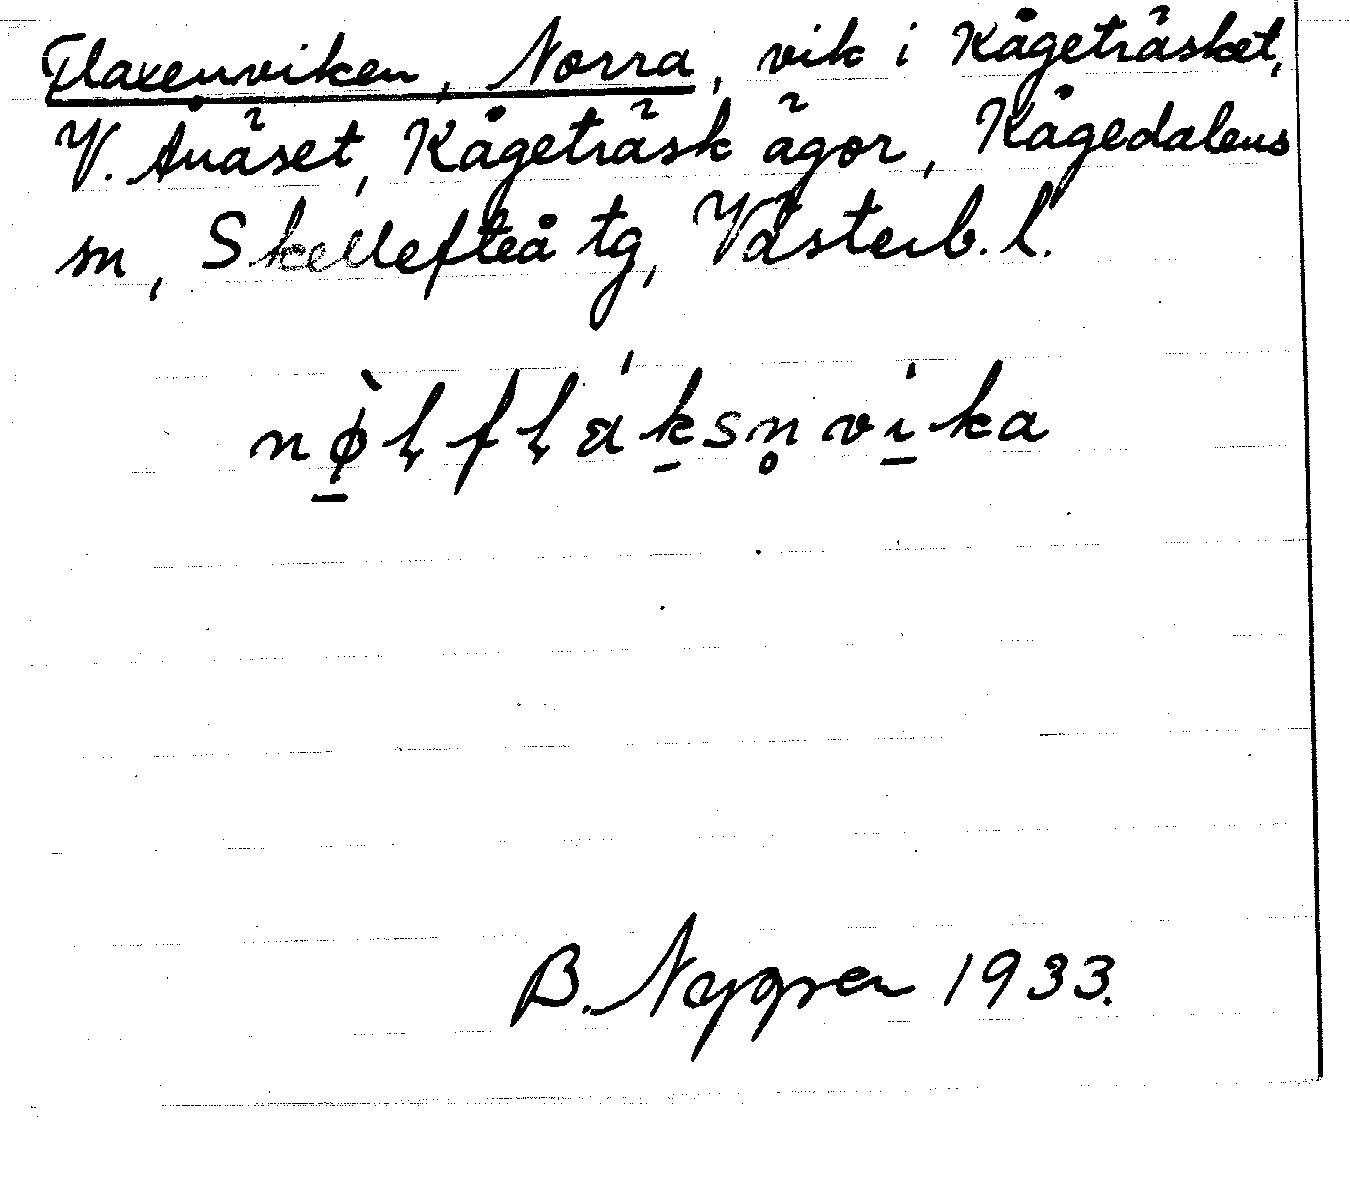 Flaxenviken, Norra, vik i Kågeträsket,
V. Ånäset, Kågeträsk ägor, Kågedalens
sn, Skellefteå tg, Västerb. l.
B. Nygren 1933.